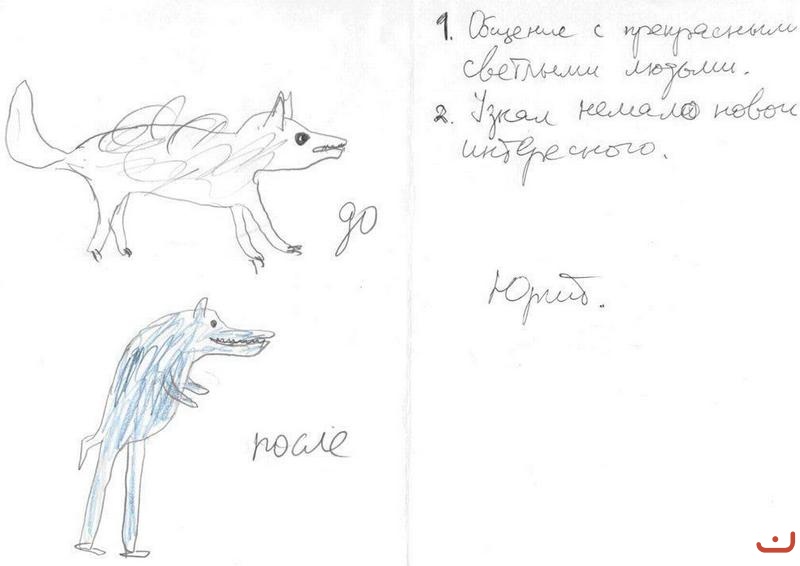 до
после
1. Общение с прекрасными
светлыми людьми.
2. Узнал немало
интересного.